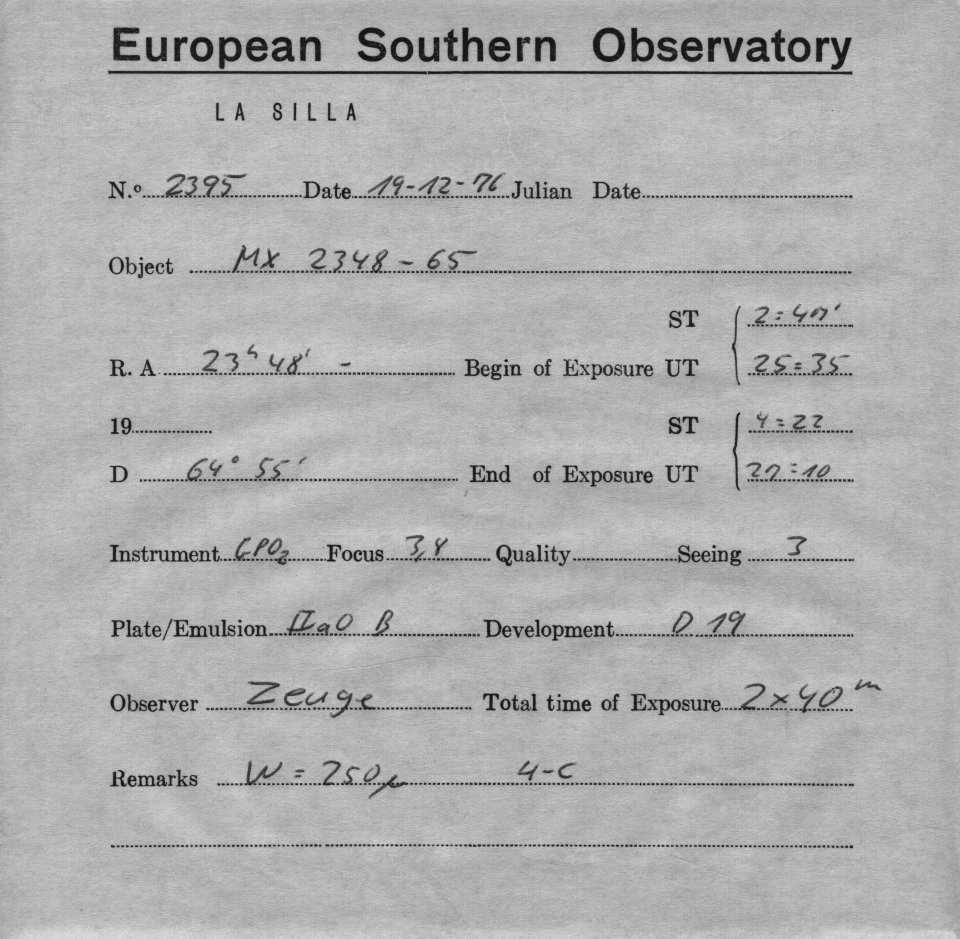 European Southern Observatory
LA SILLA
N.º 2395 Date 19-12-76 Julian Date
Object MX 2348-65
ST 2:47'
R. A 23h 48' - Begin of Exposure UT 25:35
19 ST 4:22
D 64° 55' End of Exposure UT 27:10
Instrument GPO2 Focus 3,4 Quality Seeing 3
Plate/Emulsion IIaO B Development D 19
Observer Zeuge Total time of Exposure 2x40m
Remarks W = 250µ 4-C